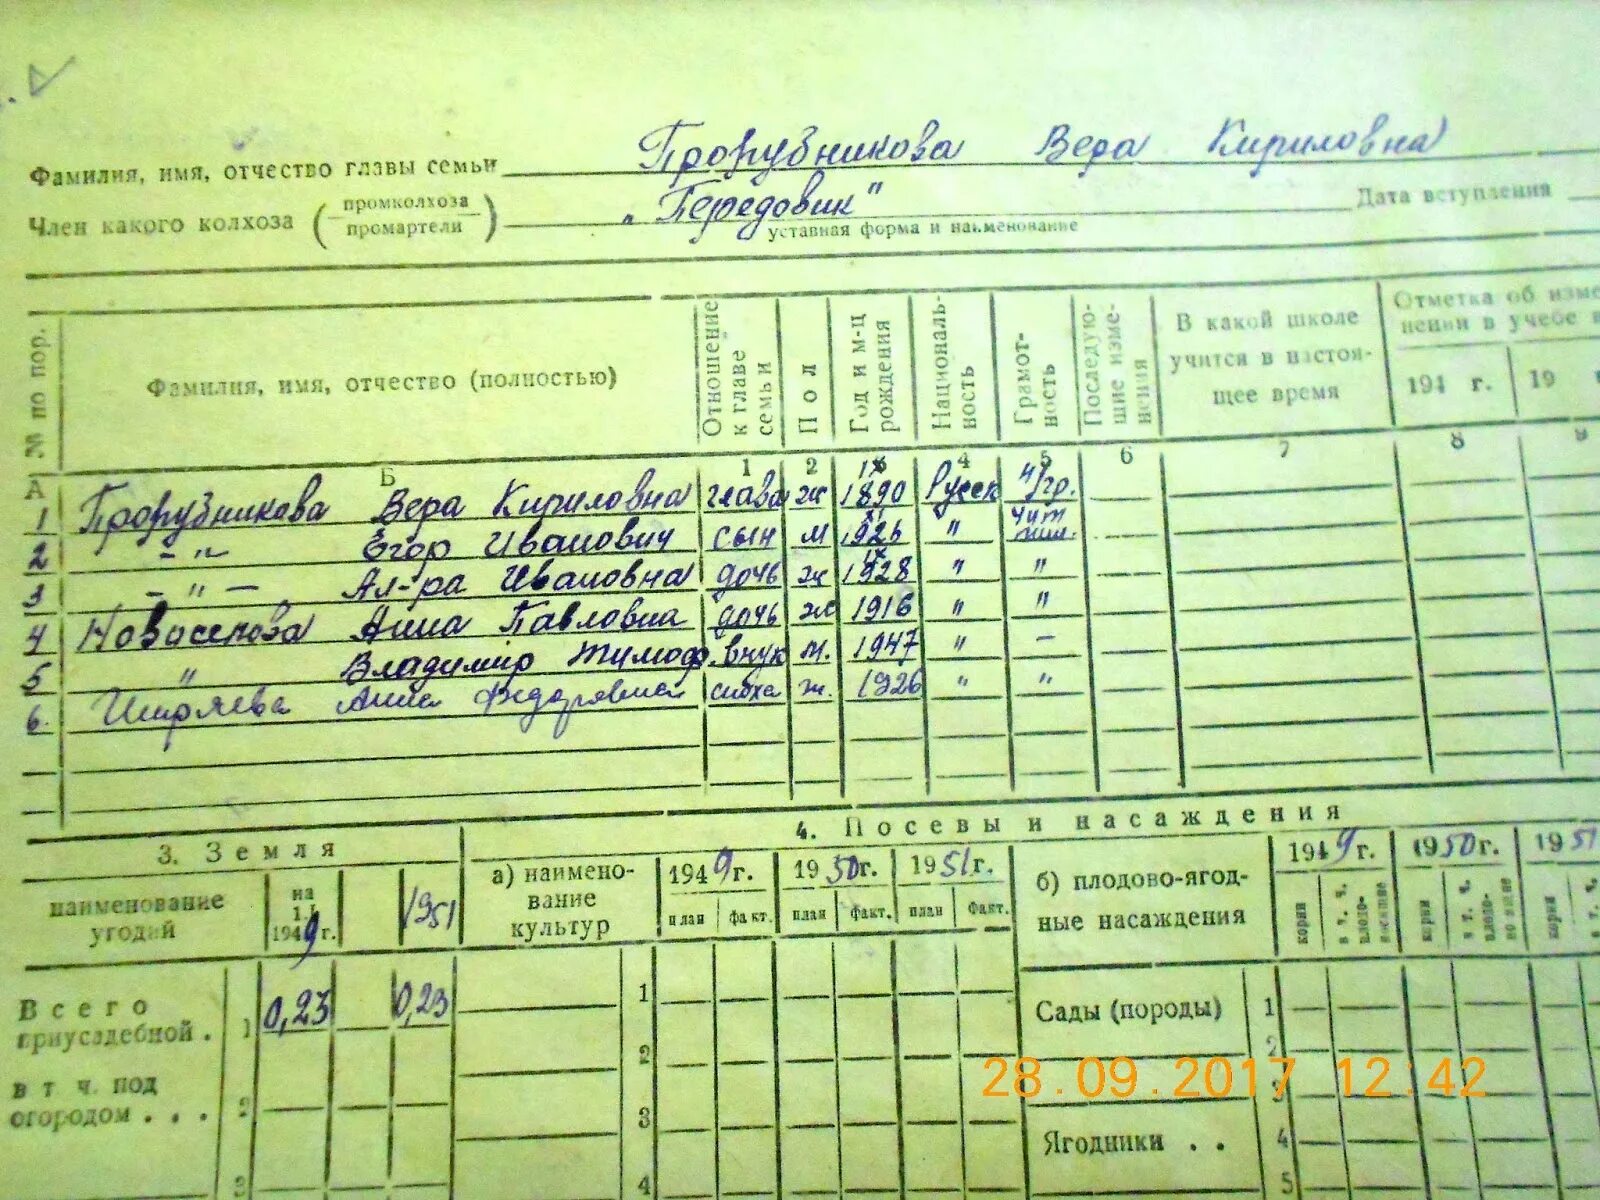 Фамилия, имя, отчество главы семьи Прорубникова Вера Кириловна
Член какого колхоза (промколхоза промартели) „Передовик" Дата вступления
уставная форма и наименование
№ по пор. Фамилия, имя, отчество (полностью) Отношение к главе семьи Пол Год и м-ц рождения Националь-ность Грамот-ность Последую-шие изме-нения В какой школе учится в настоя-щее время Отметка об изме
нении в учебе
194 г. 19
А Б 1 2 3 4 5 6 7 8 9
1 Прорубникова Вера Кириловна глава ж 1890 Русск н/гр.
2 -"- Егор Иванович сын м 1926 "
3 -"- Ал-ра Ивановна дочь ж 1928 " "
4 Анна Павловна дочь ж 1916 " "
5 " Владимир Тимоф. внук м. 1947 " -
6. Анна ж. 1926 " "
3. Земля
4. Посевы и насаждения
наименование угодий на 1.I 1949 г. 1951
а) наимено-вание культур 1949 г. 1950 г. 1951 г.
план факт. план факт. план факт.
б) плодово-ягод-ные насаждения 1949 г. 1950 г. 1951
корни в т. ч. плодо-носящие корни в т. ч. плодо- корни в т. ч.
Всего приусадебной . 1 0,23 0,23
в т. ч. под огородом . . . 2
3
1
2
3
4
Сады (породы) 1
2
3
Ягодники . . 4
5
28.09.2017 12:42